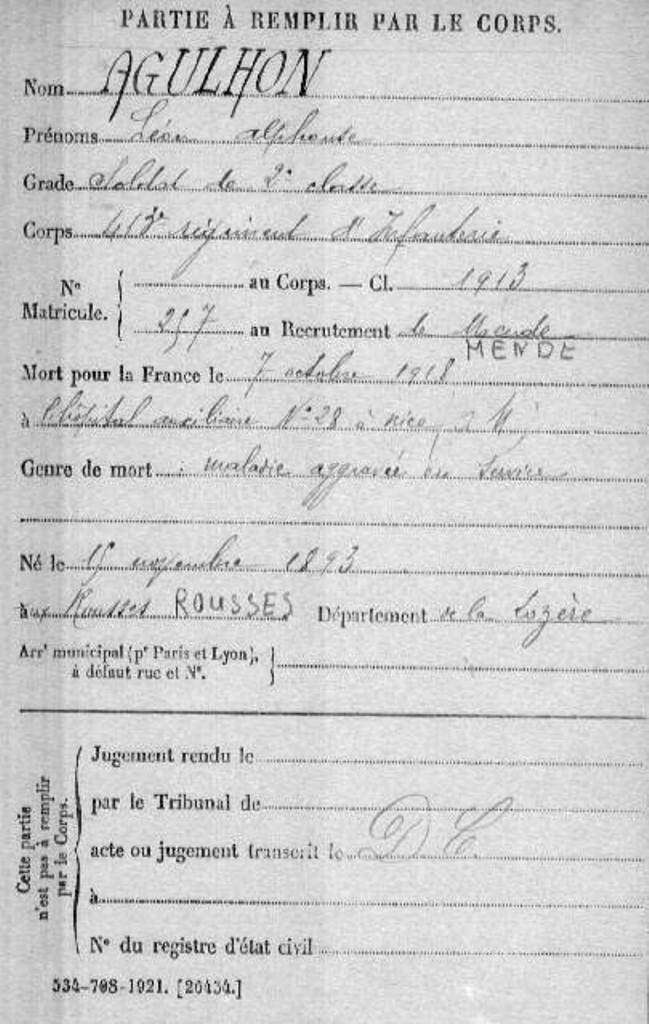 PARTIE À REMPLIR PAR LE CORPS.
Nom AGULHON
Prénoms Léon Alphonse
Grade Soldat de 2e classe
Corps 413e régiment d'Infanterie
No Matricule. { au Corps. — Cl. 1913
257 au Recrutement de Mende
MENDE
Mort pour la France le 7 octobre 1918
à l'hôpital auxiliaire No 28 à Nice
Genre de mort : maladie aggravée en service
Né le 15 novembre 1893
aux Rousses ROUSSES Département de la Lozère
Arrt municipal (pr Paris et Lyon),
à défaut rue et No. }
Cette partie n'est pas à remplir par le Corps.
Jugement rendu le
par le Tribunal de
acte ou jugement transcrit le D C
à
No du registre d'état civil
534-708-1921. [26434.]